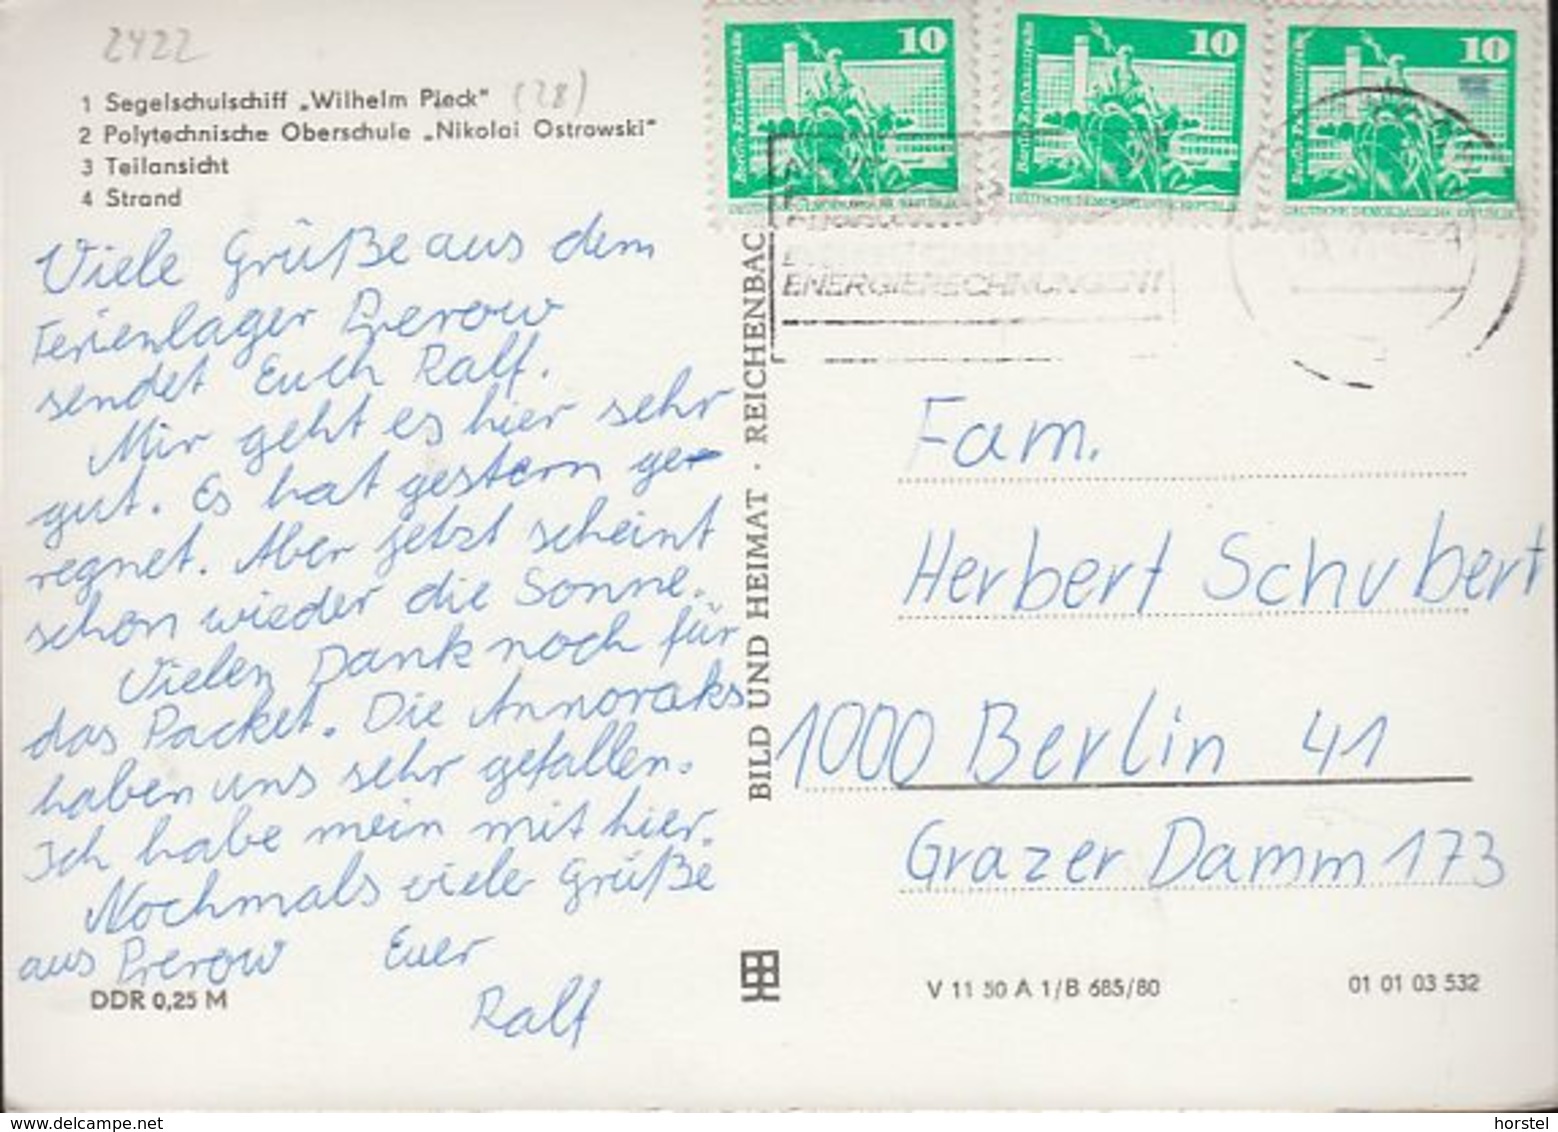 2422
1 Segelschulschiff „Wilhelm Pieck" (28)
2 Polytechnische Oberschule „Nikolai Ostrowski"
3 Teilansicht
4 Strand
Viele Grüße aus dem
Ferienlager Prerow
sendet Euch Ralf.
Mir geht es hier sehr
gut. Es hat gestern ge-
regnet. Aber jetzt scheint
schon wieder die Sonne.
Vielen Dank noch für
das Packet. Die Annoraks
haben uns sehr gefallen.
Ich habe mein mit hier.
Nochmals viele Grüße
aus Prerow Euer
Ralf
DDR 0,25 M
BILD UND HEIMAT · REICHENBAC
10
Berlin Rathausstraße
DEUTSCHE DEMOKRATISCHE REPUBLIK
10
Berlin Rathausstraße
DEUTSCHE DEMOKRATISCHE REPUBLIK
10
Berlin Rathausstraße
DEUTSCHE DEMOKRATISCHE REPUBLIK
ENERGIERECHNUNGEN!
Fam.
Herbert Schubert
1000 Berlin 41
Grazer Damm 173
V 11 50 A 1/B 685/80
01 01 03 532
www.delcampe.net
horstel